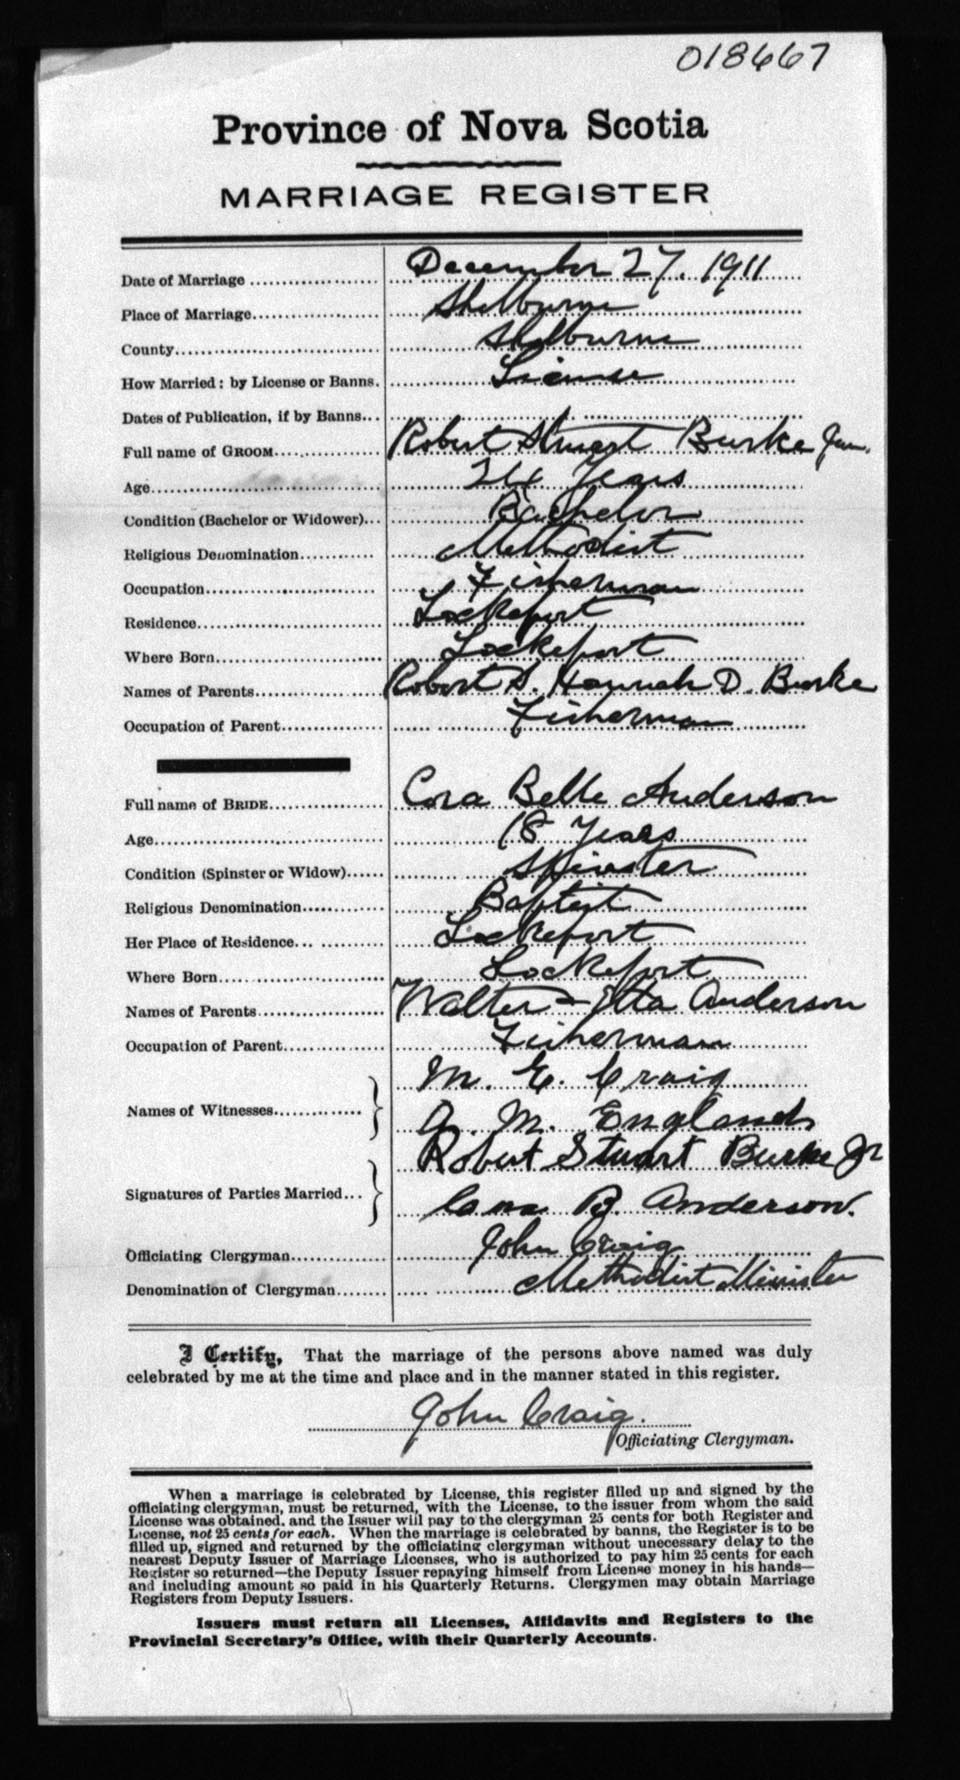 018667
Province of Nova Scotia
MARRIAGE REGISTER
Date of Marriage December 27, 1911
Place of Marriage Shelburne
County Shelburne
How Married: by License or Banns. License
Dates of Publication, if by Banns
Full name of GROOM Robert Stuart Burke Jun.
Age 24 Years
Condition (Bachelor or Widower) Bachelor
Religious Denomination Methodist
Occupation Fisherman
Residence Lockeport
Where Born Lockeport
Names of Parents Robert S. Hannah D. Burke
Occupation of Parent Fisherman
Full name of BRIDE Cora Belle Anderson
Age 18 Years
Condition (Spinster or Widow) Spinster
Religious Denomination Baptist
Her Place of Residence Lockeport
Where Born Lockeport
Names of Parents Walter - Etta Anderson
Occupation of Parent Fisherman
M. E. Craig
Names of Witnesses
M. England
Robert Stuart Burke Jr
Signatures of Parties Married
B. Anderson.
Officiating Clergyman John Craig
Denomination of Clergyman Methodist Minister
I Certify, That the marriage of the persons above named was duly
celebrated by me at the time and place and in the manner stated in this register.
John Craig.
Officiating Clergyman.
When a marriage is celebrated by License, this register filled up and signed by the
officiating clergyman, must be returned, with the License, to the issuer from whom the said
License was obtained, and the Issuer will pay to the clergyman 25 cents for both Register and
License, not 25 cents for each. When the marriage is celebrated by banns, the Register is to be
filled up, signed and returned by the officiating clergyman without unnecessary delay to the
nearest Deputy Issuer of Marriage Licenses, who is authorized to pay him 25 cents for each
Register so returned—the Deputy Issuer repaying himself from License money in his hands—
and including amount so paid in his Quarterly Returns. Clergymen may obtain Marriage
Registers from Deputy Issuers.
Issuers must return all Licenses, Affidavits and Registers to the
Provincial Secretary's Office, with their Quarterly Accounts.